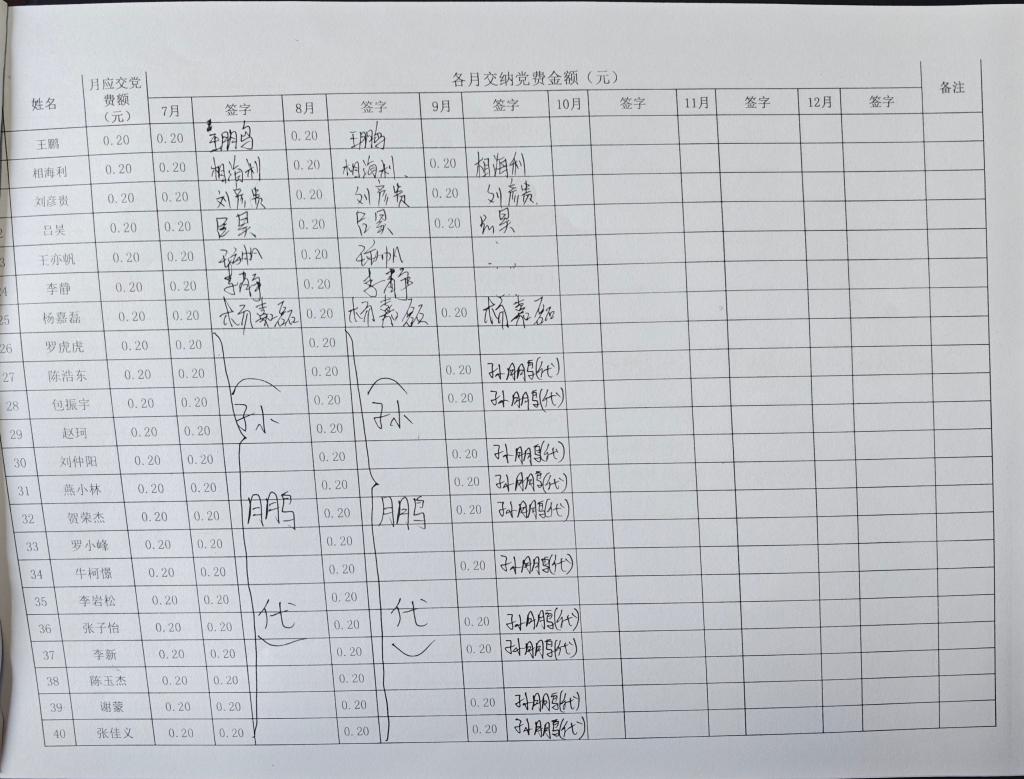 姓名 月应交党费额（元） 各月交纳党费金额（元） 备注
7月 签字 8月 签字 9月 签字 10月 签字 11月 签字 12月 签字
王鹏 0.20 0.20 王鹏 0.20 王鹏
相海利 0.20 0.20 相海利 0.20 相海利 0.20 相海利
刘彦贵 0.20 0.20 刘彦贵 0.20 刘彦贵 0.20 刘彦贵
2 吕昊 0.20 0.20 吕昊 0.20 吕昊 0.20 吕昊
3 王亦帆 0.20 0.20 王亦帆 0.20 王亦帆
24 李静 0.20 0.20 李静 0.20 李静
25 杨嘉磊 0.20 0.20 杨嘉磊 0.20 杨嘉磊 0.20 杨嘉磊
26 罗虎虎 0.20 0.20 0.20
27 陈浩东 0.20 0.20 0.20 0.20 孙朋鹏(代)
28 包振宇 0.20 0.20 孙 0.20 孙 0.20 孙朋鹏(代)
29 赵珂 0.20 0.20 0.20
30 刘仲阳 0.20 0.20 0.20 0.20 孙朋鹏(代)
31 燕小林 0.20 0.20 0.20 0.20 孙朋鹏(代)
32 贺荣杰 0.20 0.20 朋鹏 0.20 朋鹏 0.20 孙朋鹏(代)
33 罗小峰 0.20 0.20 0.20
34 牛柯憬 0.20 0.20 0.20 0.20 孙朋鹏(代)
35 李岩松 0.20 0.20 0.20
36 张子怡 0.20 0.20 代 0.20 代 0.20 孙朋鹏(代)
37 李新 0.20 0.20 0.20 0.20 孙朋鹏(代)
38 陈玉杰 0.20 0.20 0.20
39 谢蒙 0.20 0.20 0.20 0.20 孙朋鹏(代)
40 张佳义 0.20 0.20 0.20 0.20 孙朋鹏(代)